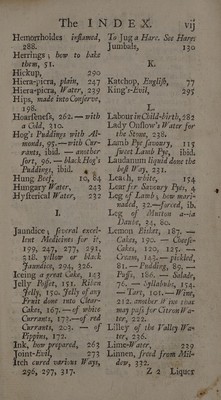 The INDEX. vij
Hemorrhoides inflamed,
288.
Herrings; how to bake
them, 51.
Hickup, 290
Hiera-picra, plain, 247
Hiera-picra, Water, 239
Hips, made into Conserve,
198.
Hoarseness, 262. — with
a Cold, 310.
Hog's Puddings with Al-
monds, 95.—with Cur-
rants, ibid. — another
sort, 96. — black Hog's
Puddings, ibid.
Hung Beef, 10, 84
Hungary Water, 243
Hysterical Water, 232
I.
Jaundice; several excel-
lent Medicines for it,
199, 247, 277, 291,
218. yellow or black
Jaundice, 294, 326.
Iceing a great Cake, 143
Jelly Posset, 151. Riten
Jelly, 150. Jelly of any
Fruit done into Clear-
Cakes, 167.—of white
Currants, 171.—of red
Currants, 203. — of
Pippins, 171.
Ink, how prepared, 263
Joint-Evil, 273
Itch cured various Ways,
296, 297, 317.
To Jug a Hare. See Hare
Jumbals, 130
K.
Katchop, English, 77
King's-Evil, 295
L.
Labour in Child-birth, 282
Lady Onslow's Water for
the Stone, 238.
Lamb Pye savoury, 115
sweet Lamb Pye, ibid.
Laudanum liquid done the
best Way, 231.
Leach, white, 154
Lear for Savoury Pyes, 4
Leg of Lamb; how mari-
naded, 32—forced, ib.
Leg of Mutton a-la
Daube, 24, 80.
Lemon Bisket, 187. —
Cakes, 190. — Cheese-
Cakes, 120, 125. —
Cream, 142.— pickled,
81.— Pudding, 89. —
Puff, 186. — Salade,
76. — Syllabubs, 154.
— Tart, 101.—Wine,
212. another Wine that
may pass for Citron Wa-
ter, 222.
Lilley of the Valley Wa-
ter, 236.
Lime-Water, 239
Linnen, freed from Mil-
dew, 332.
Z 2 Liquor